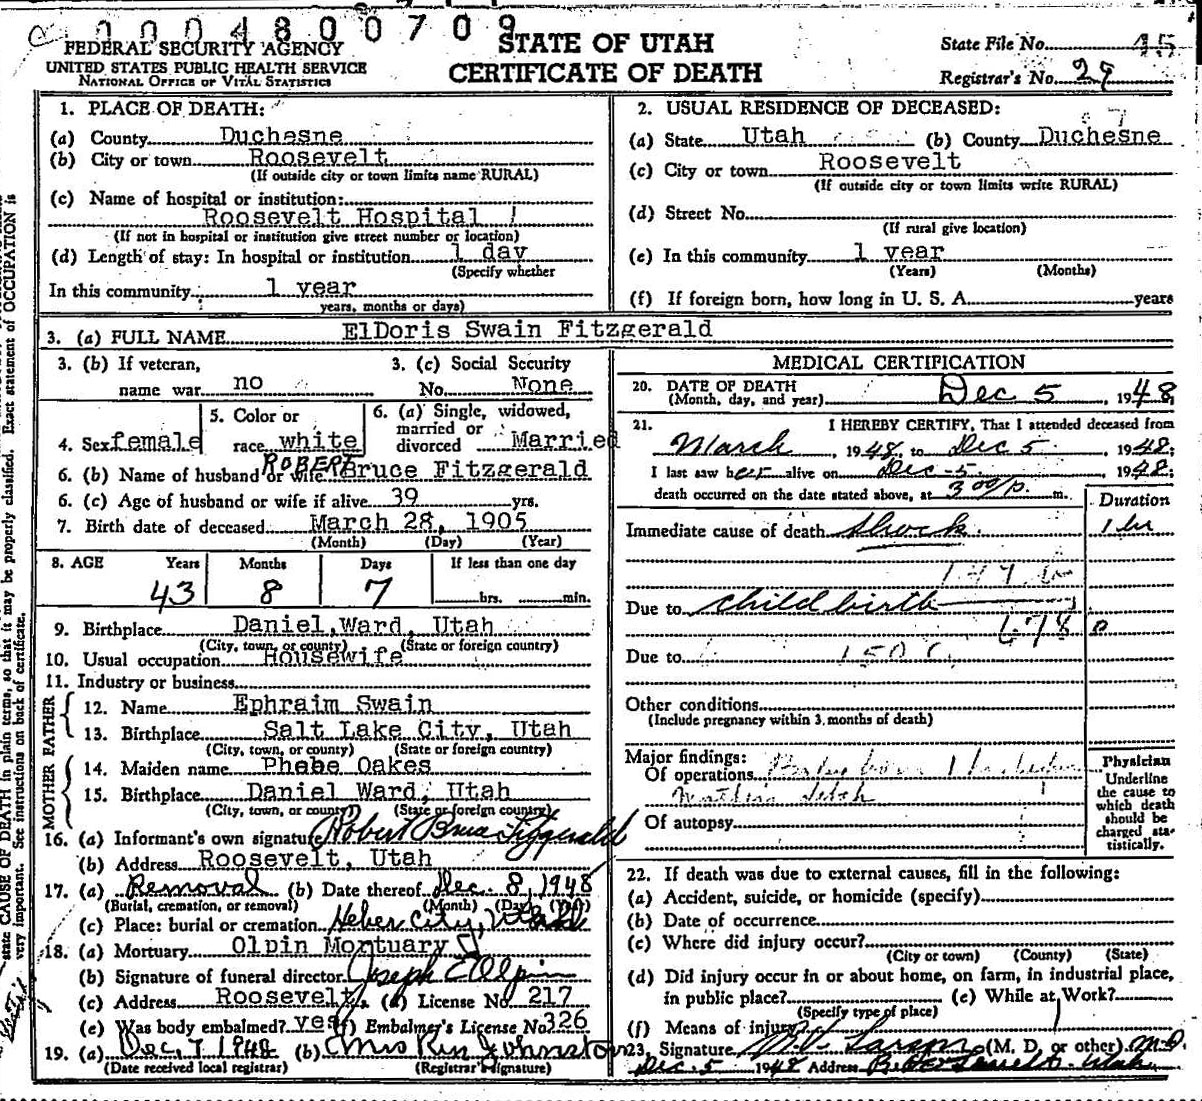 0004800709
STATE OF UTAH
CERTIFICATE OF DEATH
FEDERAL SECURITY AGENCY
UNITED STATES PUBLIC HEALTH SERVICE
NATIONAL OFFICE OF VITAL STATISTICS
State File No. 45
Registrar's No. 29
1. PLACE OF DEATH:
(a) County Duchesne
(b) City or town Roosevelt
(If outside city or town limits name RURAL)
(c) Name of hospital or institution:
Roosevelt Hospital
(If not in hospital or institution give street number or location)
(d) Length of stay: In hospital or institution 1 day
(Specify whether
In this community 1 year
years, months or days)
2. USUAL RESIDENCE OF DECEASED:
(a) State Utah (b) County Duchesne
(c) City or town Roosevelt
(If outside city or town limits write RURAL)
(d) Street No.
(If rural give location)
(e) In this community 1 year
(Years) (Months)
(f) If foreign born, how long in U. S. A. years
3. (a) FULL NAME ElDoris Swain Fitzgerald
3. (b) If veteran,
name war no
3. (c) Social Security
No. None
4. Sex female
5. Color or
race white
6. (a) Single, widowed,
married or
divorced Married
6. (b) Name of husband or wife ROBERT Bruce Fitzgerald
6. (c) Age of husband or wife if alive 39 yrs.
7. Birth date of deceased March 28, 1905
(Month) (Day) (Year)
8. AGE Years Months Days If less than one day
43 8 7 hrs. min.
9. Birthplace Daniel, Ward, Utah
(City, town, or county) (State or foreign country)
10. Usual occupation Housewife
11. Industry or business
FATHER
12. Name Ephraim Swain
13. Birthplace Salt Lake City, Utah
(City, town, or county) (State or foreign country)
MOTHER
14. Maiden name Phebe Oakes
15. Birthplace Daniel Ward, Utah
(City, town, or county) (State or foreign country)
16. (a) Informant's own signature Robert Bruce Fitzgerald
(b) Address Roosevelt, Utah
17. (a) Removal (b) Date thereof Dec. 8, 1948
(Burial, cremation, or removal) (Month) (Day) (Yr)
(c) Place: burial or cremation Heber City, Utah
18. (a) Mortuary Olpin Mortuary
(b) Signature of funeral director Joseph E Olpin
(c) Address Roosevelt, (d) License No. 217
(e) Was body embalmed? yes (f) Embalmer's License No 326
19. (a) Dec. 7 1948 (b) Mrs Ken Johnston
(Date received local registrar) (Registrar's signature)
MEDICAL CERTIFICATION
20. DATE OF DEATH
(Month, day, and year) Dec 5, 1948
21. I HEREBY CERTIFY, That I attended deceased from
March, 1948, to Dec 5, 1948;
I last saw her alive on Dec-5, 1948;
death occurred on the date stated above, at 3 00/p. m.
Duration
Immediate cause of death Shock. 1 hr
Due to childbirth
678 0
Due to 150 C
Other conditions
(Include pregnancy within 3 months of death)
Major findings:
Of operations
Of autopsy
Physician
Underline
the cause to
which death
should be
charged sta-
tistically.
22. If death was due to external causes, fill in the following:
(a) Accident, suicide, or homicide (specify)
(b) Date of occurrence
(c) Where did injury occur?
(City or town) (County) (State)
(d) Did injury occur in or about home, on farm, in industrial place,
in public place? (e) While at Work?
(Specify type of place)
(f) Means of injury?
23. Signature Larson (M. D. or other) M.D.
Dec. 5 1948 Address Roosevelt, Utah
state CAUSE OF DEATH in plain terms, so that it may be properly classified. Exact statement of OCCUPATION is
very important. See instructions on back of certificate.